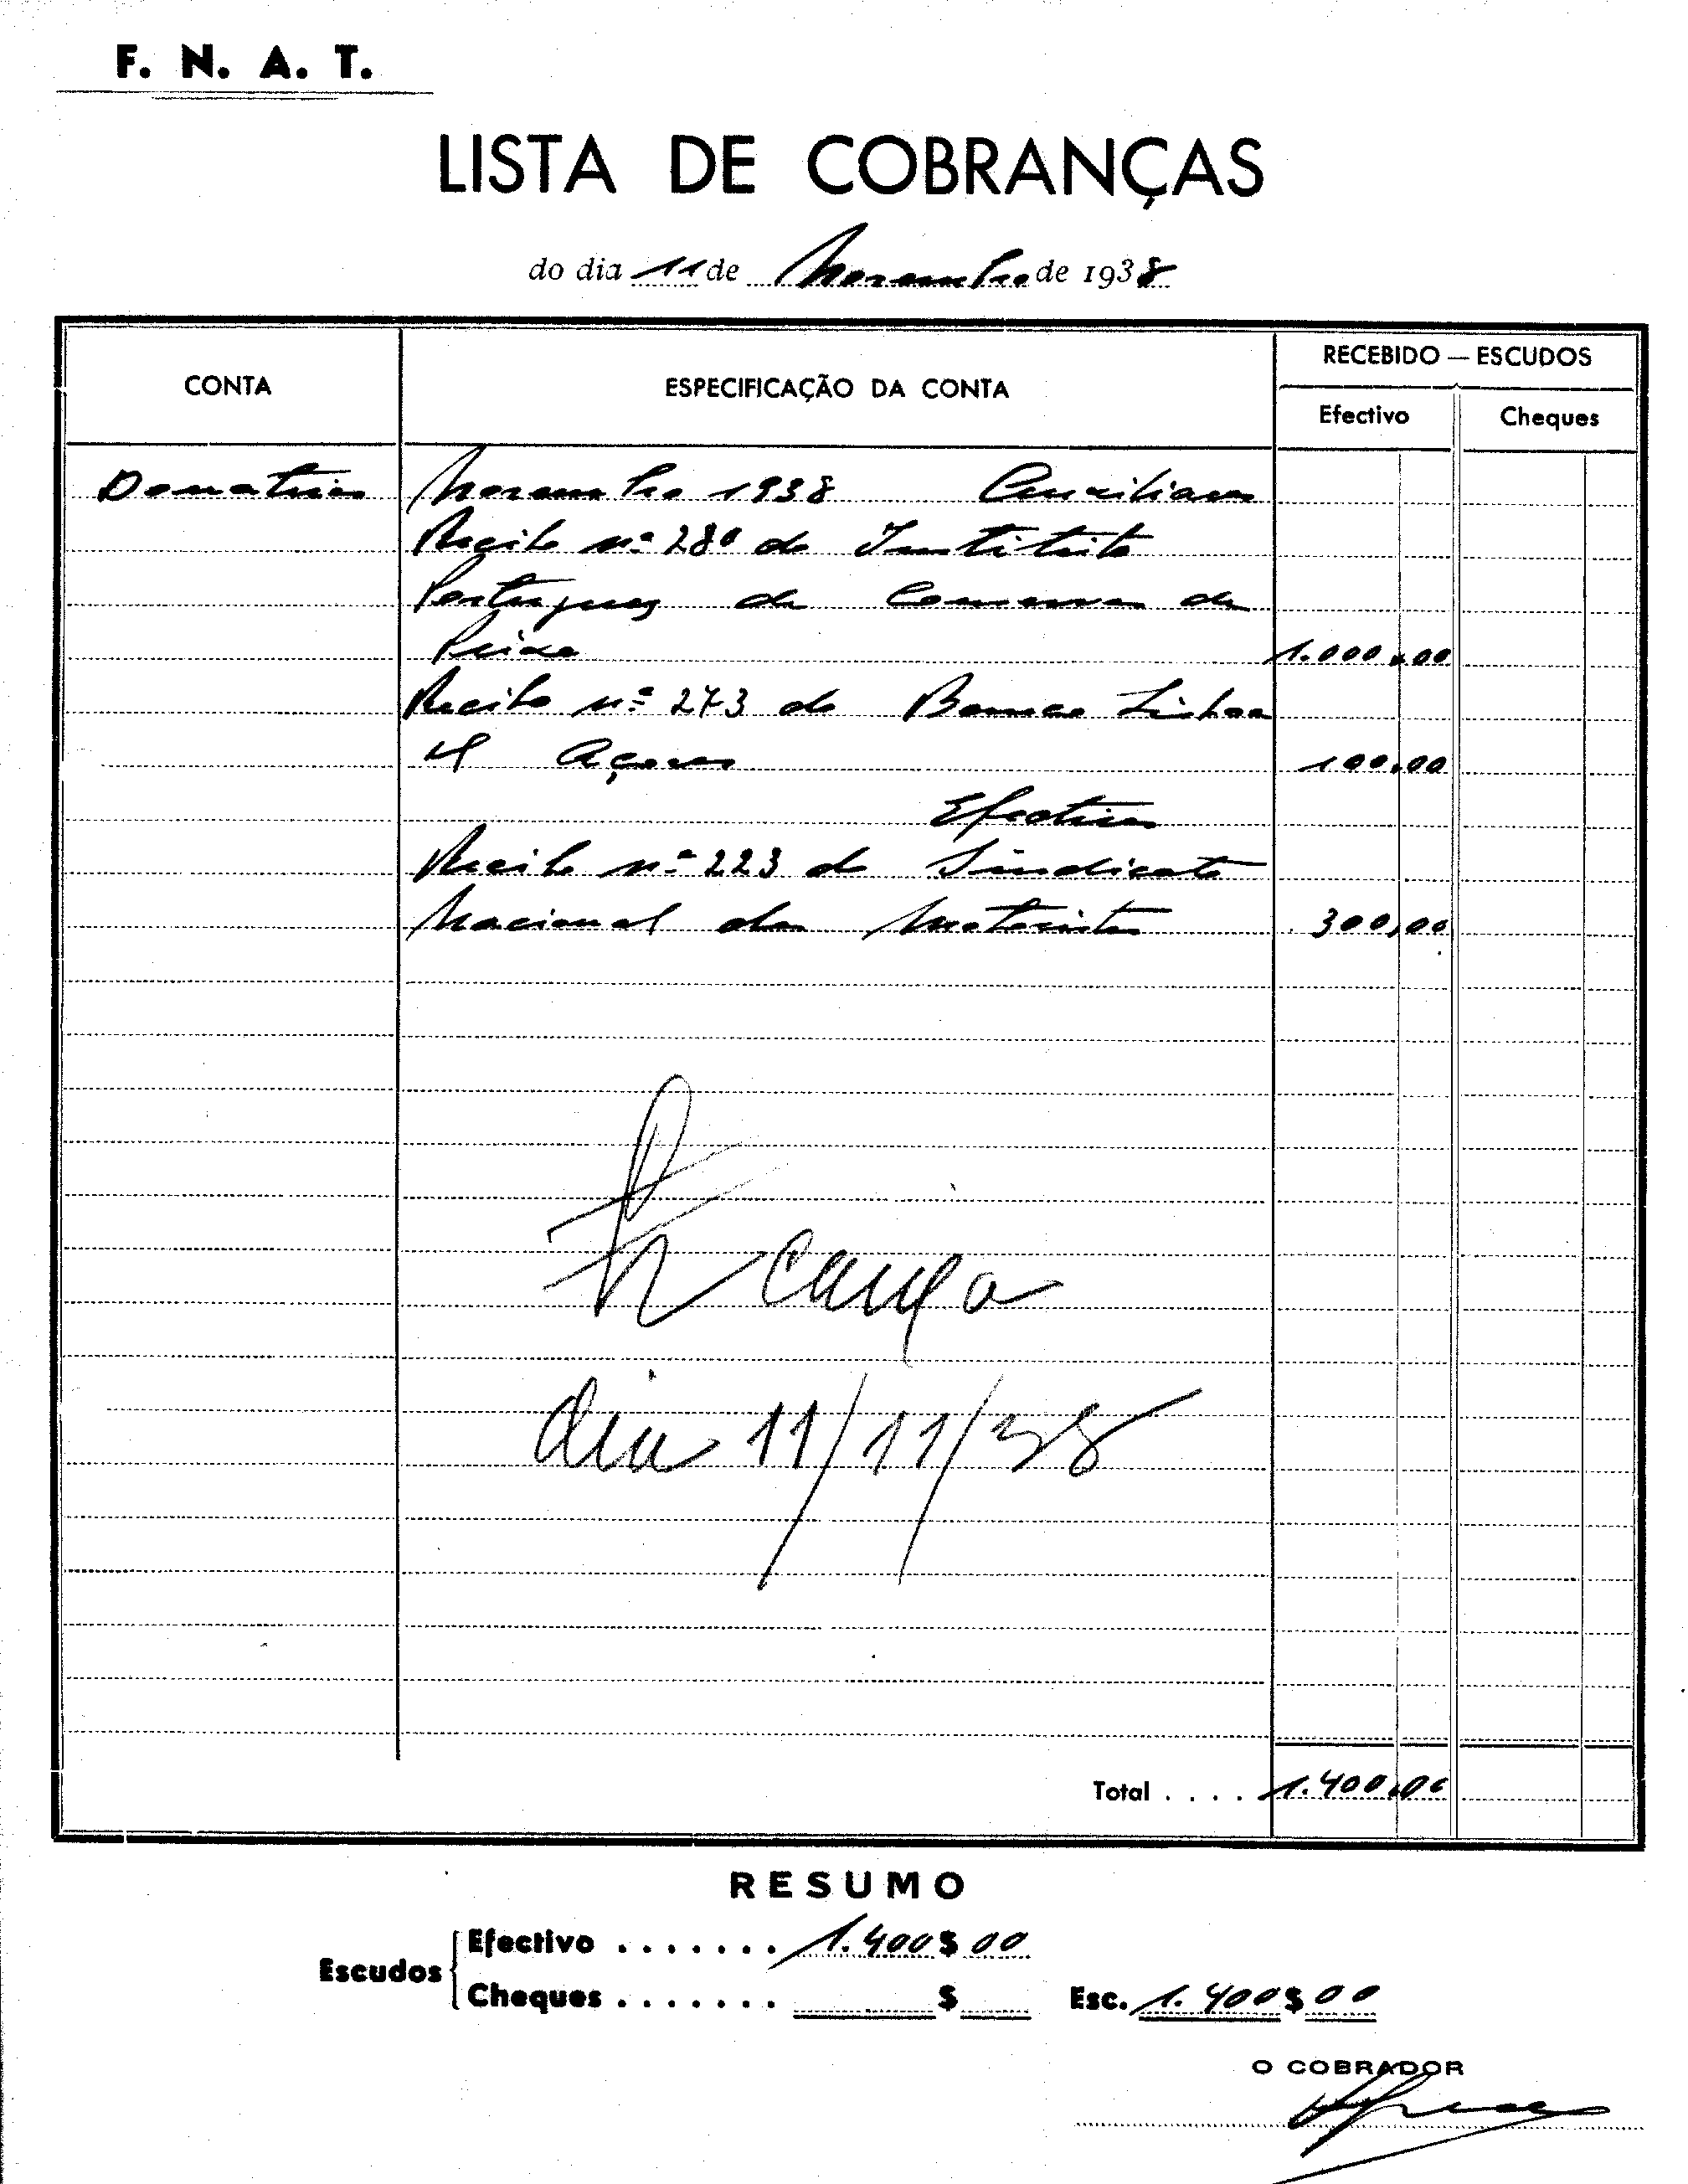 F. N. A. T.
LISTA DE COBRANÇAS
do dia 11 de Novembro de 1938
CONTA
ESPECIFICAÇÃO DA CONTA
RECEBIDO — ESCUDOS
Efectivo
Cheques
Donativos Novembro 1938 Auxiliares
Recibo nº 280 do Instituto
Portuguez de Conservas de
Peixe 1.000,00
Recibo nº 273 do Banco Lisboa
& Açores 100,00
Efectivos
Recibo nº 223 do Sindicato
Nacional dos Motoristas 300,00
Caixa
dia 11/11/38
Total . . . . 1.400,00
RESUMO
Escudos
Efectivo . . . . . . . 1.400$00
Cheques . . . . . . . $ Esc. 1.400$00
O COBRADOR